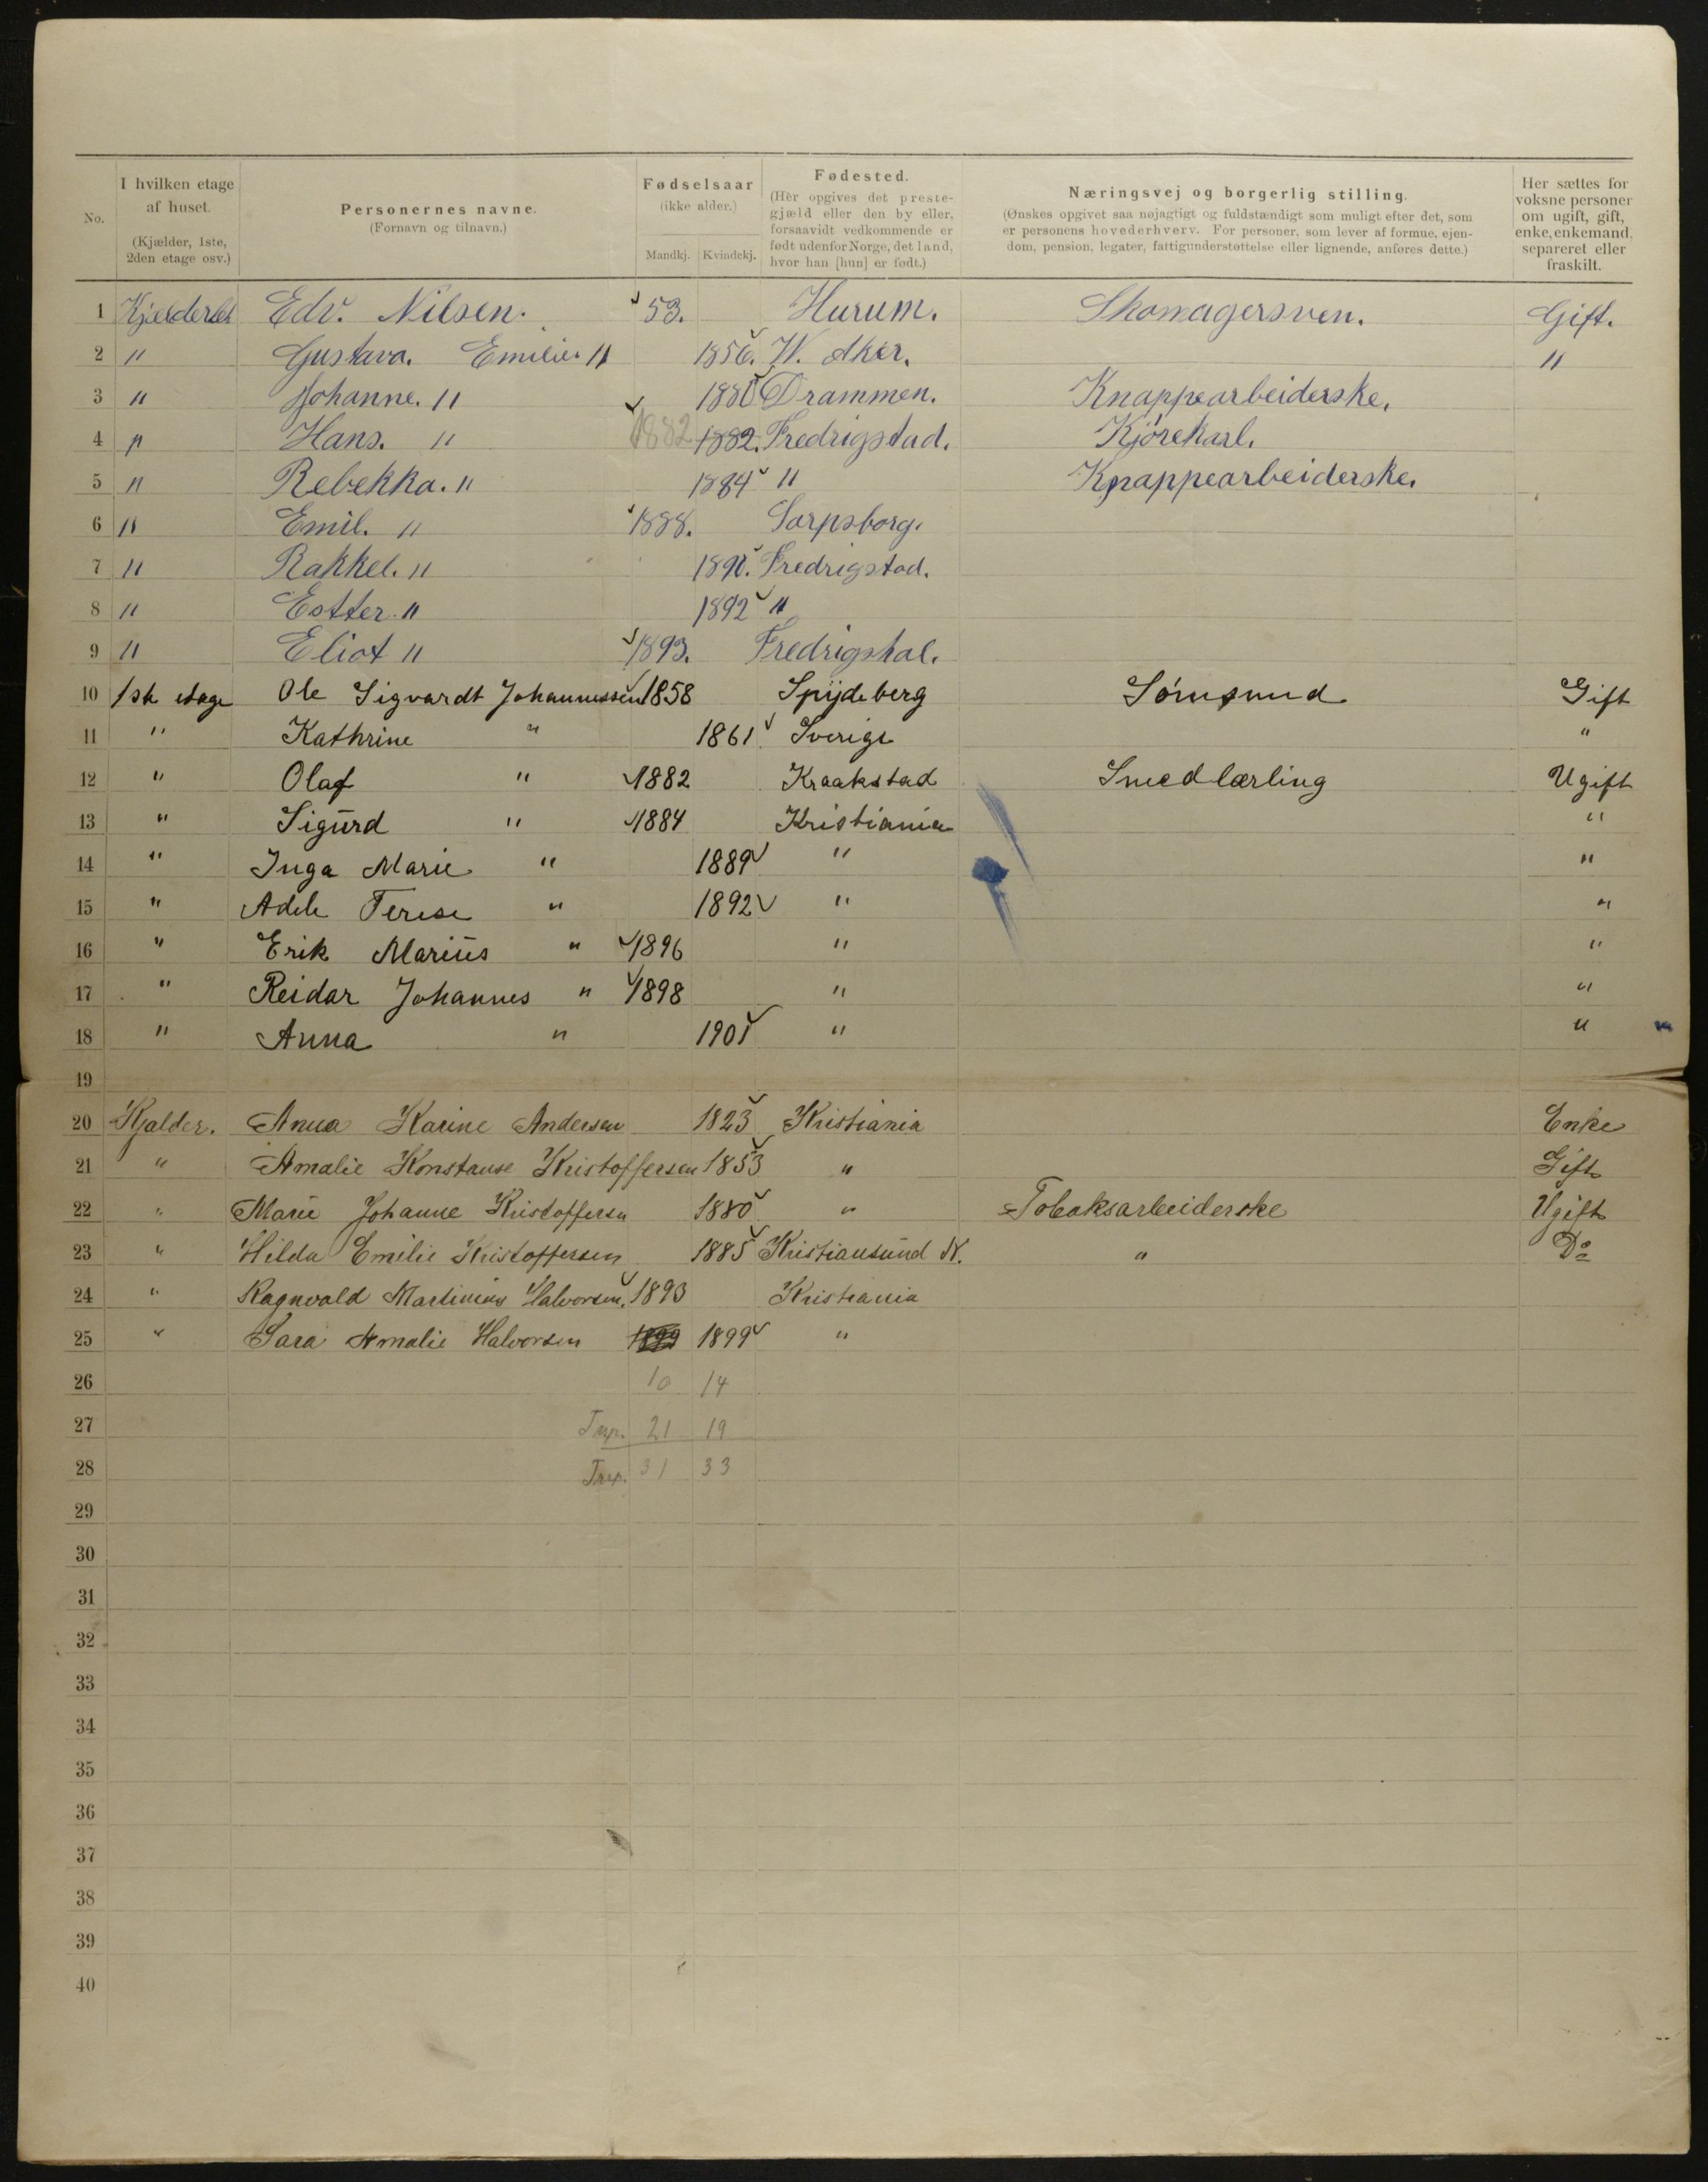 No.
I hvilken etage af huset. (Kjælder, 1ste, 2den etage osv.)
Personernes navne. (Fornavn og tilnavn.)
Fødselsaar (ikke alder.) Mandkj. Kvindekj.
Fødested. (Her opgives det prestegjæld eller den by eller, forsaavidt vedkommende er født udenfor Norge, det land, hvor han [hun] er født.)
Næringsvej og borgerlig stilling. (Ønskes opgivet saa nøjagtigt og fuldstændigt som muligt efter det, som er personens hovederhverv. For personer, som lever af formue, ejendom, pension, legater, fattigunderstøttelse eller lignende, anføres dette.)
Her sættes for voksne personer om ugift, gift, enke, enkemand, separeret eller fraskilt.
1 Edv. Nilsen. 53. Hurum. Skomagersven. Gift.
2 " Gustava. Emilie " 1856. V. Aker. "
3 " Johanne. " 1880 Drammen. Knappearbeiderske.
4 " Hans. " 1882 1882. Fredrigstad. Kjørekarl.
5 " Rebekka. " 1884 " Knappearbeiderske.
6 " Emil. " 1888. Sarpsborg.
7 " Rakkel. " 1890. Fredrigstad.
8 " Estter. " 1892 "
9 " Eliot " 1893. Fredrigshal.
10 1ste etage Ole Sigvardt Johannessen 1858 Spydeberg Gift
11 " Kathrine " 1861 Sverige "
12 " Olaf " 1882 Kraakstad Smedlærling Ugift
13 " Sigurd " 1884 Kristiania "
14 " Inga Marie " 1889 " "
15 " Adele Terese " 1892 " "
16 " Erik Marius " 1896 " "
17 " Reidar Johannes " 1898 " "
18 " Anna " 1901 " "
19
20 Kjælder. Anna Karine Andersen 1823 Kristiania Enke
21 " Amalie Konstanse Kristoffersen 1853 " Gift
22 " Marie Johanne Kristoffersen 1880 " Tobaksarbeiderske Ugift
23 " Hilda Emilie Kristoffersen 1885 Kristiansund N. " Do
24 " Ragnvald Martinius Halvorsen. 1893 Kristiania
25 " Sara Amalie Halvorsen 1899 1899 "
26 10 14
27 21 19
28 31 33
29
30
31
32
33
34
35
36
37
38
39
40